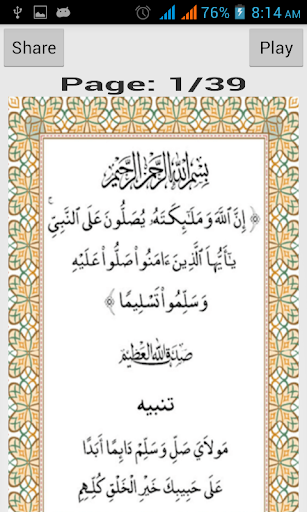 76% 8:14 AM
Share
Play
Page: 1/39
بِسْمِ اللَّهِ الرَّحْمَٰنِ الرَّحِيمِ
﴿ إِنَّ ٱللَّهَ وَمَلَـٰٓئِكَتَهُۥ يُصَلُّونَ عَلَى ٱلنَّبِىِّ ۚ
يَـٰٓأَيُّهَا ٱلَّذِينَ ءَامَنُوا۟ صَلُّوا۟ عَلَيْهِ
وَسَلِّمُوا۟ تَسْلِيمًا ﴾
صَدَقَ اللهُ العَظِيمُ
تنبيه
مَوْلَايَ صَلِّ وَسَلِّمْ دَايِمًا أَبَدًا
عَلَى حَبِيبِكَ خَيْرِ الْخَلْقِ كُلِّهِمِ